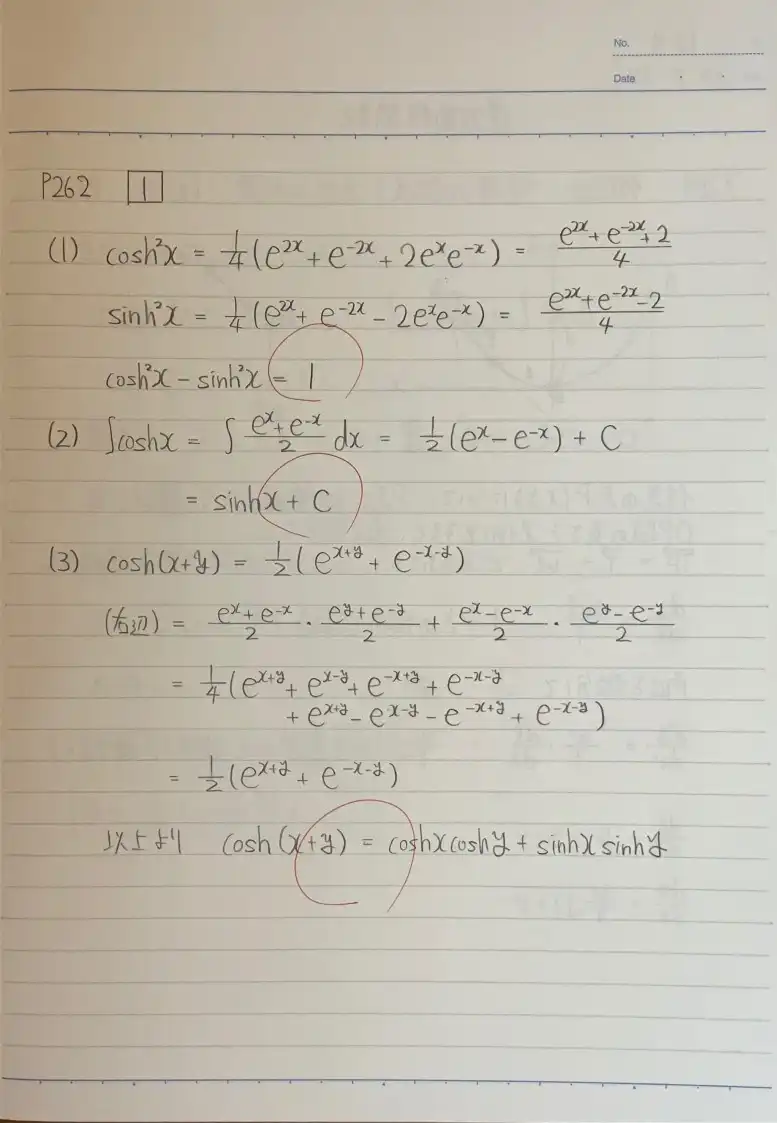 No.
Date
P262 1
(1) cosh²x = 1/4(e^{2x} + e^{-2x} + 2e^x e^{-x}) = (e^{2x} + e^{-2x} + 2)/4
sinh²x = 1/4(e^{2x} + e^{-2x} - 2e^x e^{-x}) = (e^{2x} + e^{-2x} - 2)/4
cosh²x - sinh²x = 1
(2) ∫coshx = ∫ (e^x + e^{-x})/2 dx = 1/2(e^x - e^{-x}) + C
= sinhx + C
(3) cosh(x+y) = 1/2(e^{x+y} + e^{-x-y})
(右辺) = (e^x + e^{-x})/2 · (e^y + e^{-y})/2 + (e^x - e^{-x})/2 · (e^y - e^{-y})/2
= 1/4(e^{x+y} + e^{x-y} + e^{-x+y} + e^{-x-y}
+ e^{x+y} - e^{x-y} - e^{-x+y} + e^{-x-y})
= 1/2(e^{x+y} + e^{-x-y})
以上より cosh(x+y) = coshxcoshy + sinhxsinhy